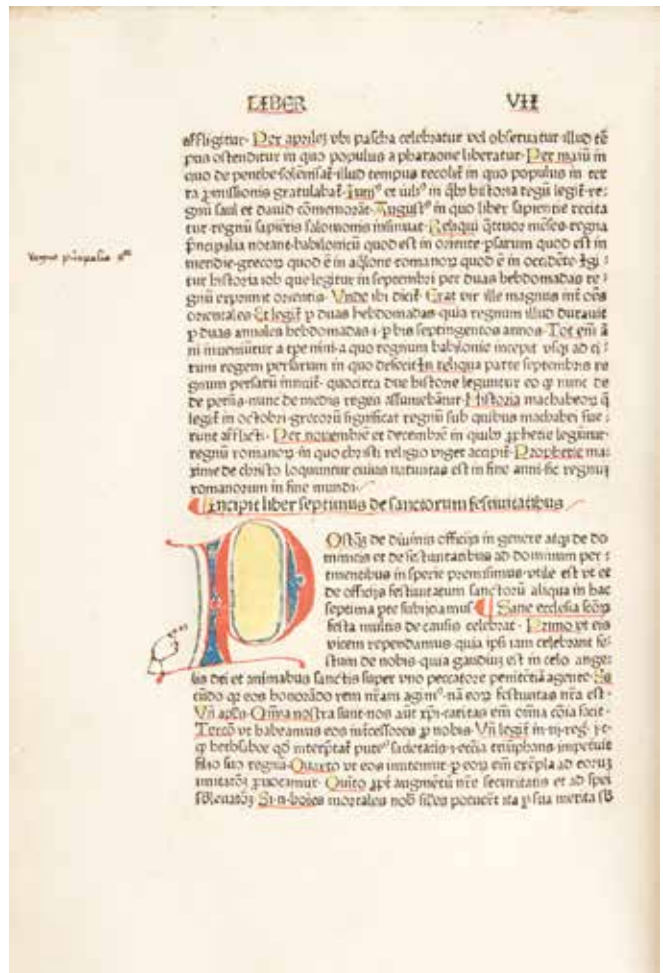 LIBER VII
affligitur· Per aprilez vbi pascha celebratur vel obseruatur illud tē
pus ostenditur in quo populus a pharaone liberatur· Per maiū in
quo de penthe solēnisat᷑·illud tempus recolit᷑ in quo populus in ter
ra ꝓmissionis gratulabat᷑·Iuniꝰ et iuliꝰ in qb̄s historia regū legit᷑·re·
gnū saul et dauid cōmemorāt·Augustꝰ in quo liber sapientie recita
tur·regnū sapiētis salomonis insinuat·Reliqui q̄ttuor mēses·regna
pͥncipalia notant·babilonicū quod est in oriente·psarum quod est in
meridie·grecoꝝ quod ē in aq̄lone romanoꝝ quod ē in occidēte·Igi
tur historia iob que legitur in septembri per duas hebdomadas re
gnū exprimit orientis· Vnde ibi dicit᷑· Erat vir ille magnus int̄ oēs
orientales·Et legit᷑ p duas hebdomadas·quia regnum illud durauit
p duas annales hebdomadas·i·p bis septingentos annos·Tot em̄ ā
ni inueniūtur a tpe nini·a quo regnum babilonie incepit vsqꝫ ad ci
rum regem persarum in quo defecit·In reliqua parte septembris re
gnum persarū innuit᷑·quocirca due historie leguntur eo ꝙ nunc de
de persis·nunc de medis reges assumebātur·Historia machabeoꝝ q̄
legit᷑ in octobri·grecorū significat regnū sub quibus machabei fue
runt afflicti· Per nouembrē et decembrē in quibꝫ ꝓphetie legūtur·
regnū romanoꝝ in quo christi religio viget accipit᷑·Prophetie ma
xime de christo loquuntur cuius natiuitas est in fine anni·sic regnuꝫ
romanorum in fine mundi·
Incipit liber septimus de sanctorum festiuitatibus
POstq̄ꝫ de diuinis officijs in genere atqꝫ de do
minicis et de festiuitatibus ad dominum per
tinentibus in specie premisimus·vtile est vt et
de officijs festiuitatum sanctorū aliqua in hac
septima pte subijciamus Sane ecclesia scōꝝ
festa multis de causis celebrat· Primo vt eis
vicem rependamus quia ipsi iam celebrant fe
stum de nobis·quia gaudiuꝫ est in celo ange
lis dei et animabus sanctis super vno peccatore penitētiā agente·Se
cūdo qꝫ eos honorādo rem nr̄am agimꝰ·nā eoꝝ festiuitas nr̄a est·
Vn̄ apl̄s·Omīa nostra sunt·nos aūt xp̄i·caritas em̄ omīa cōia facit·
Tercō vt habeamus eos intͥcessores ꝓ nobis· Vn̄ legit᷑
filio suo regnū·Quarto vt eos imitemur·ꝑ eoꝝ em̄ exēpla ad eoruꝫ
imitatōꝫ ꝓuocamur· Quīto ꝓpt᷑ augmētū nr̄e securitatis et ad spei
sb̄leuatōꝫ Si·n·hoīes mortales nob̄ siles potuer̄t ita ꝑ sua merita sb̄